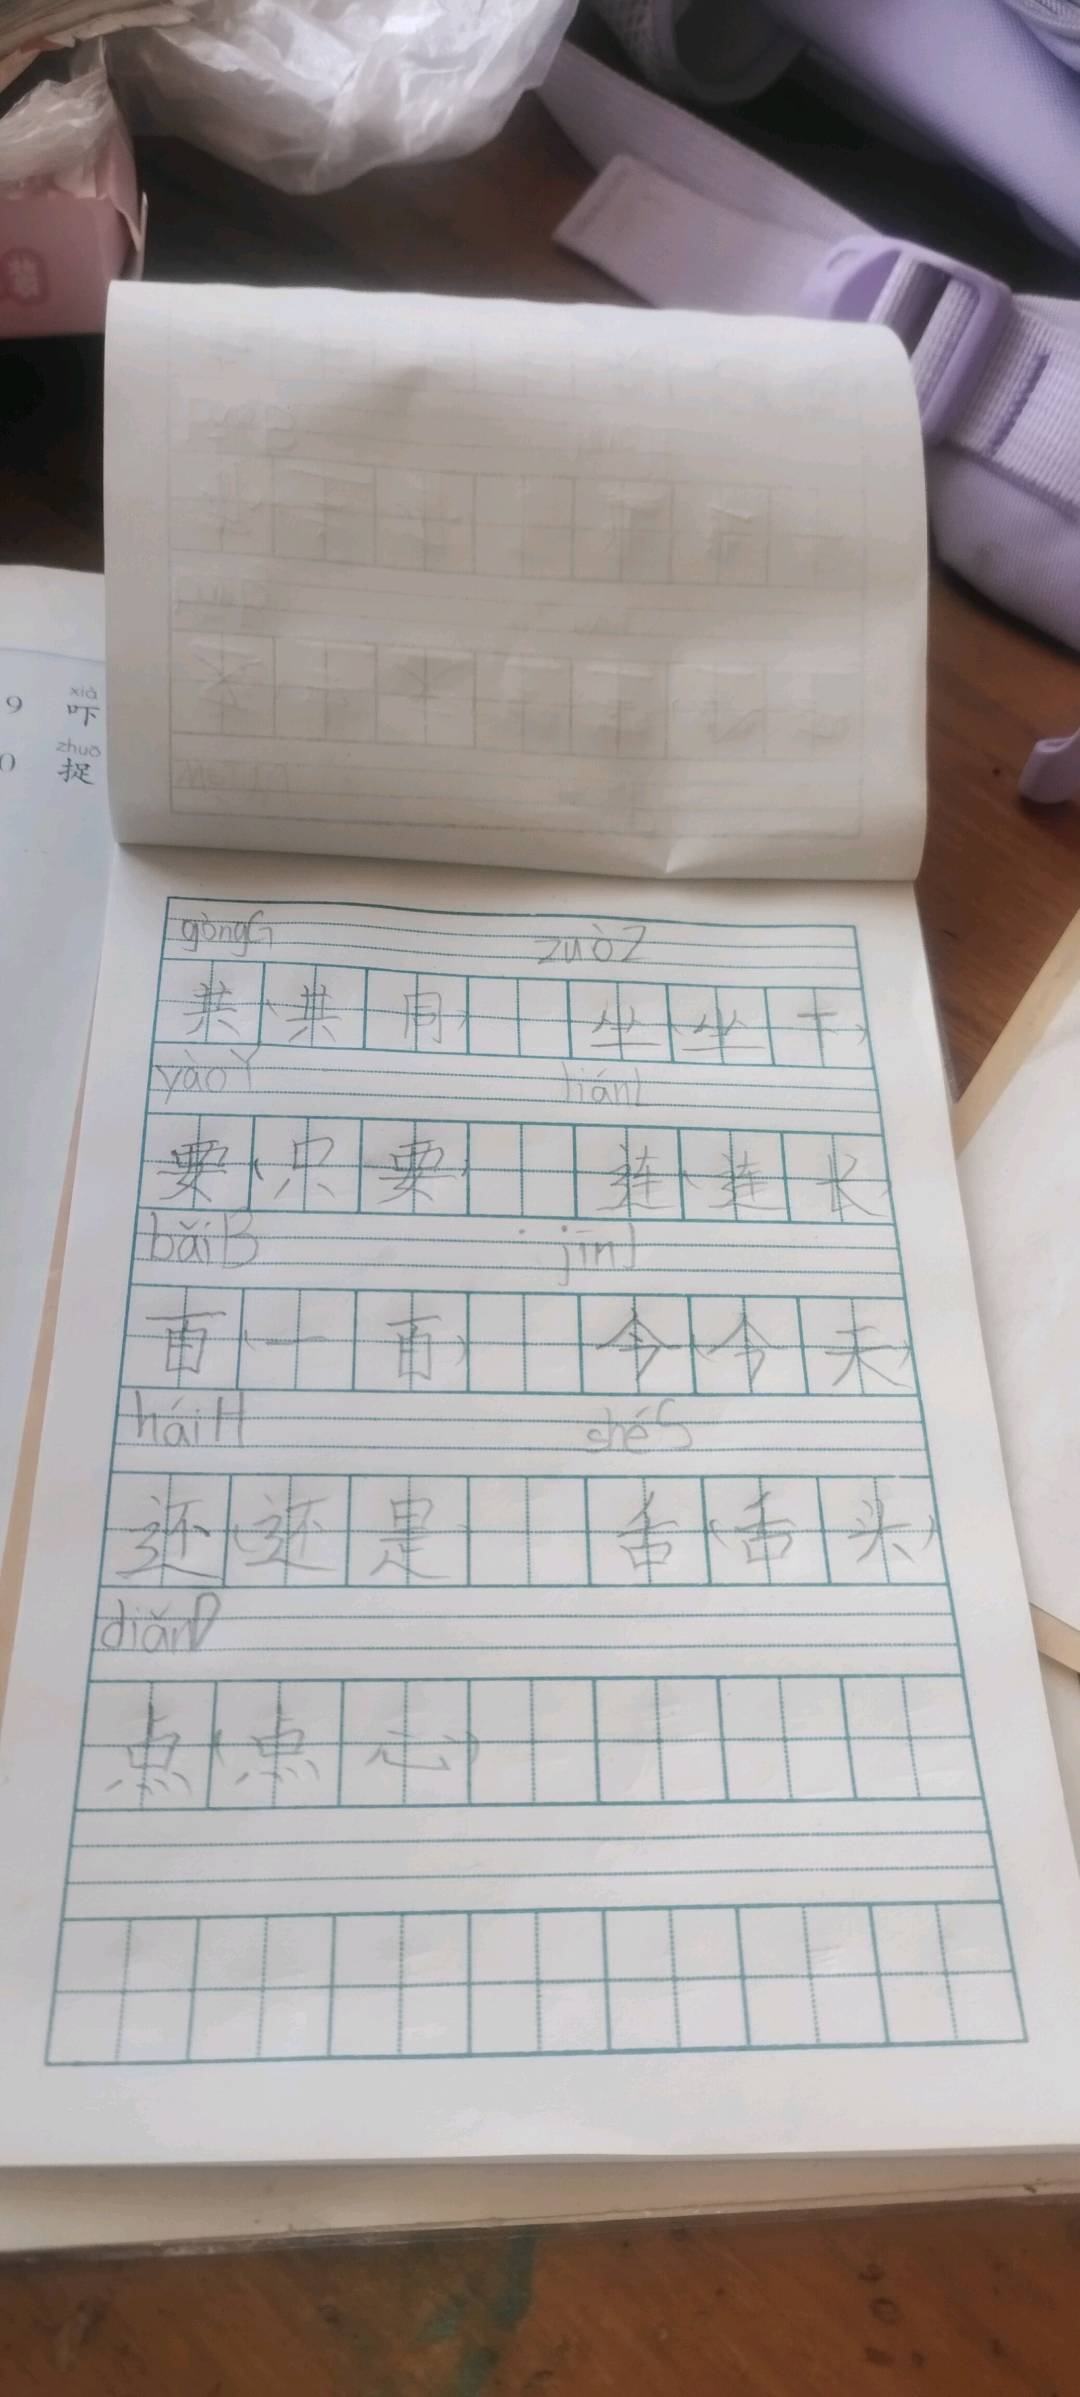 xià
9 吓
zhuō
0 捉
gòngG zuòZ
共(共同) 坐(坐下)
yàoY liánL
要(只要) 连(连长)
bǎiB jīnJ
百(一百) 今(今天)
háiH shéS
还(还是) 舌(舌头)
diǎnD
点(点心)